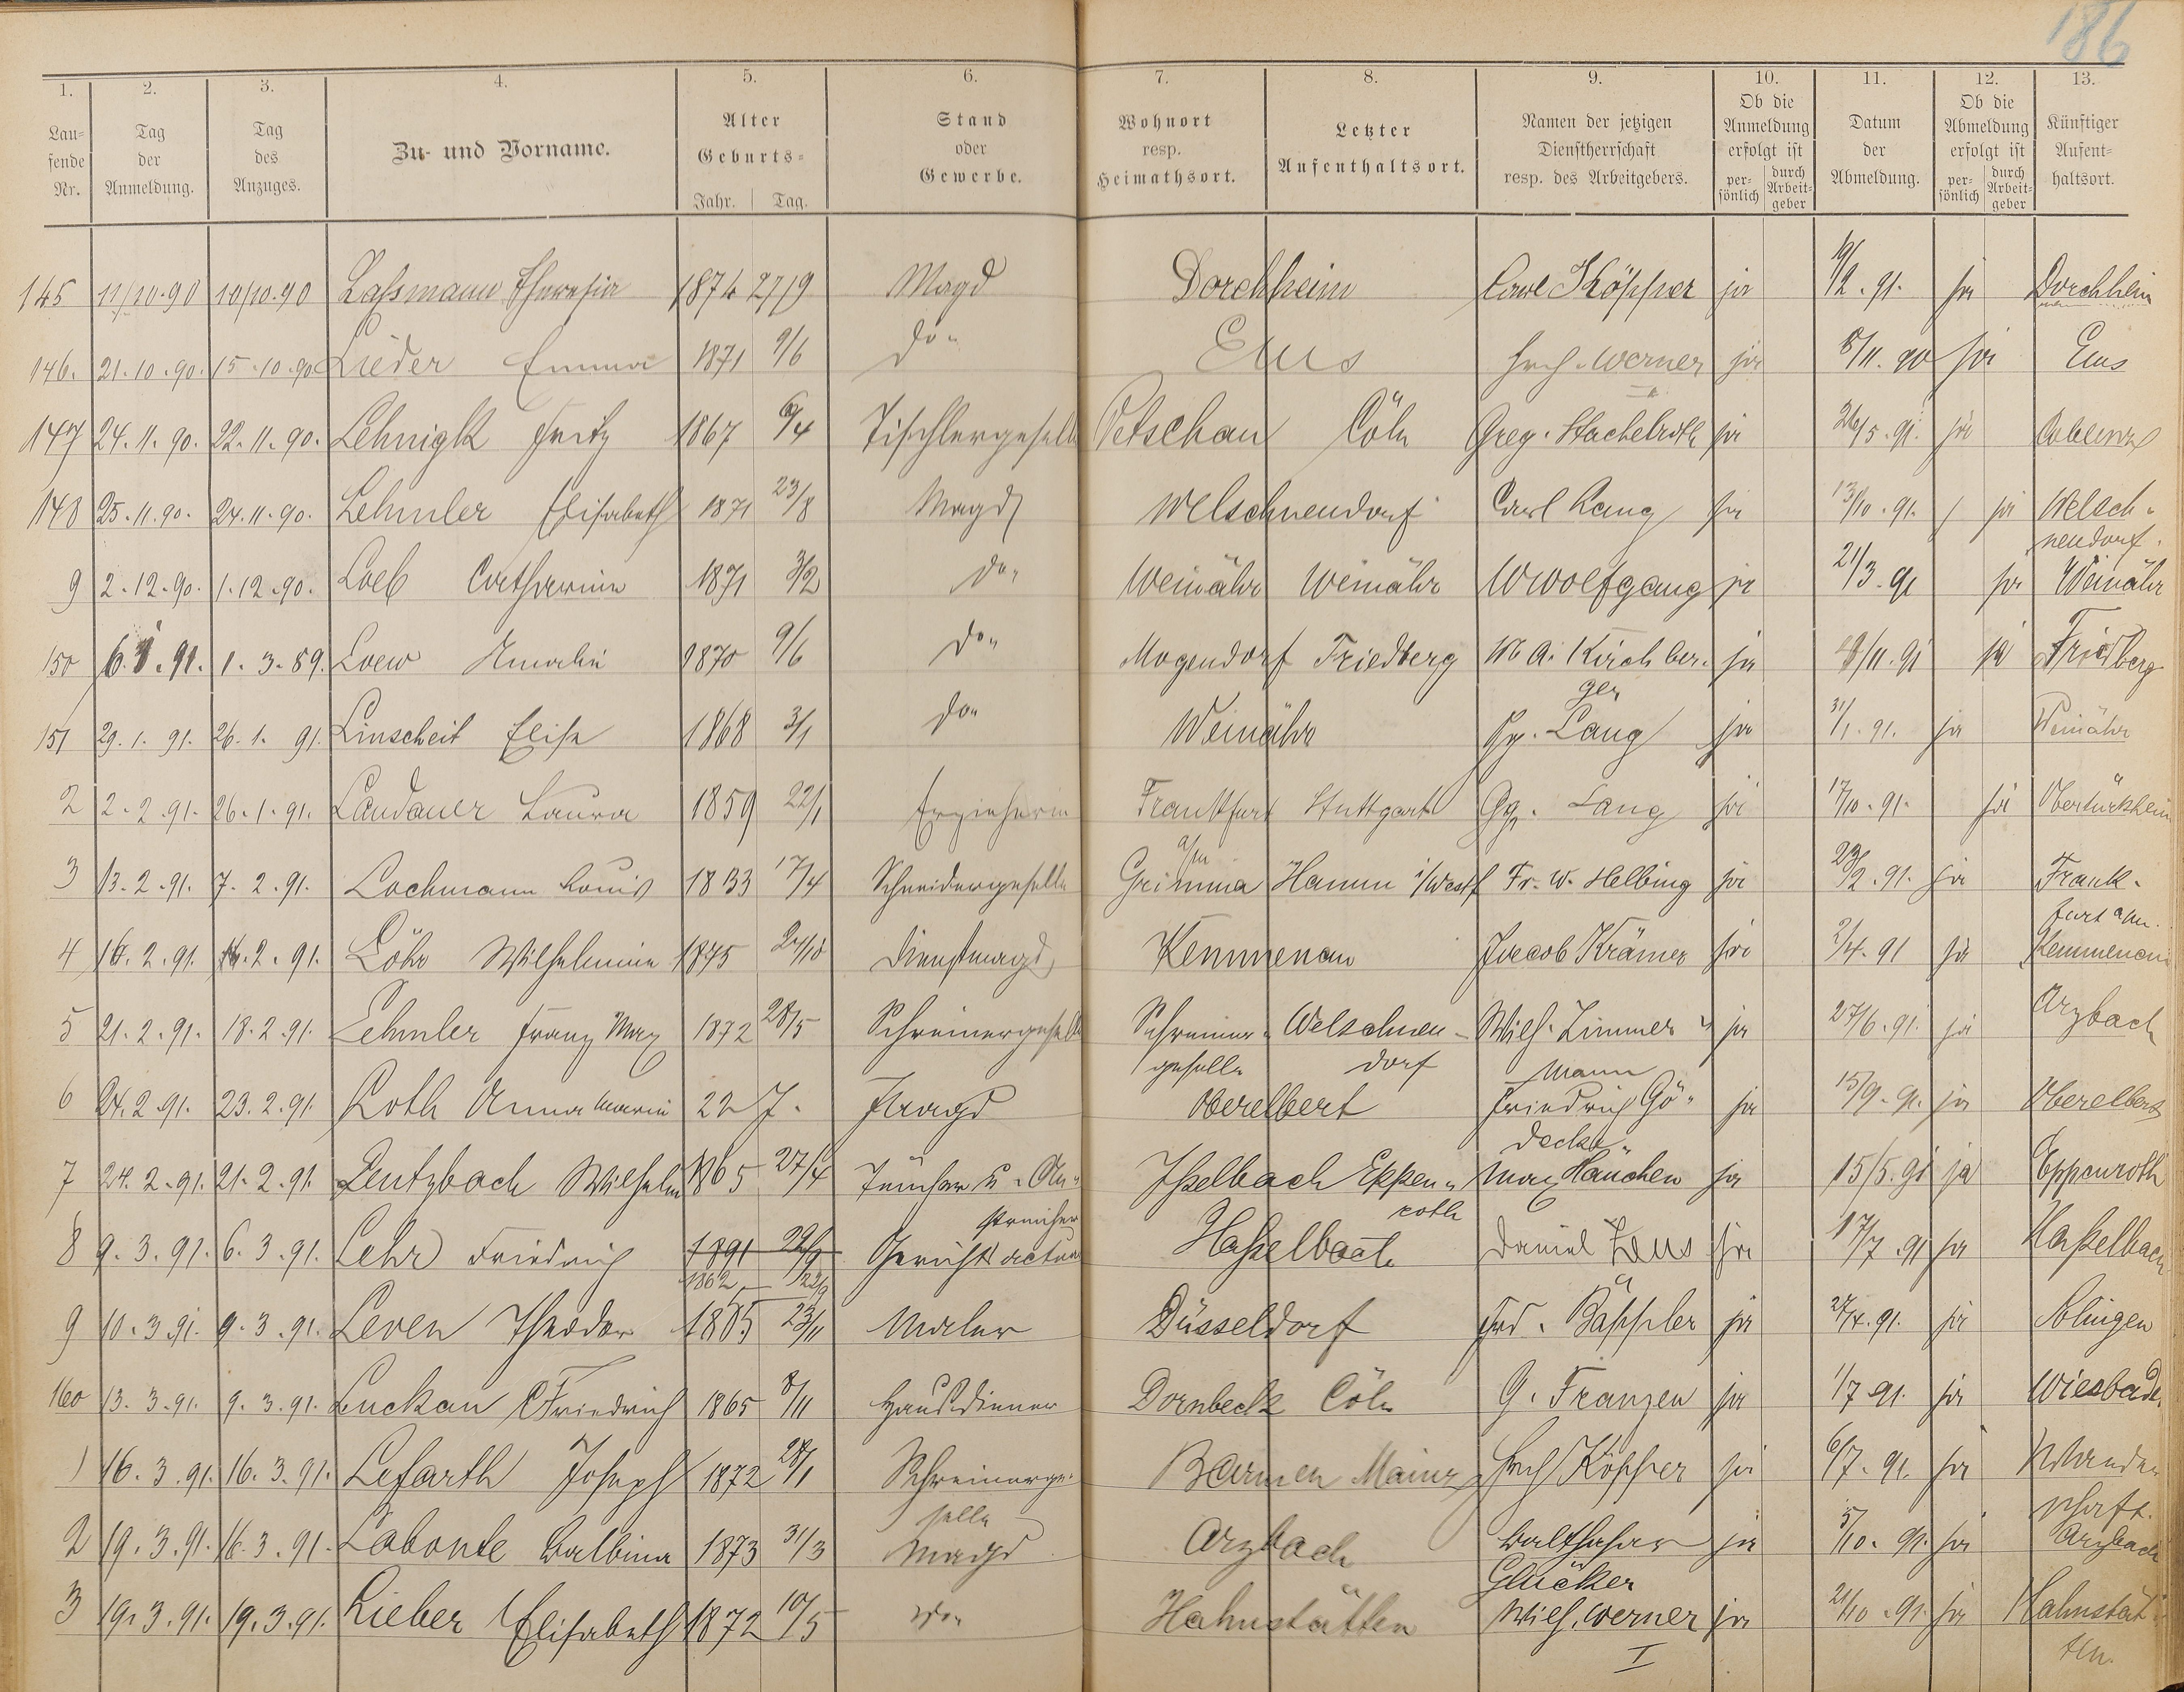 186
1. 2. 3. 4. 5. 6. 7. 8. 9. 10. 11. 12. 13.
Lau-
fende
Nr.
Tag
der
Anmeldung.
Tag
des
Anzuges.
Zu- und Vorname.
Alter
Geburts-
Jahr. Tag.
Stand
oder
Gewerbe.
Wohnort
resp.
Heimathsort.
Letzter
Aufenthaltsort.
Namen der jetzigen
Dienstherrschaft
resp. des Arbeitgebers.
Ob die
Anmeldung
erfolgt ist
per-
sönlich
durch
Arbeit-
geber
Datum
der
Abmeldung.
Ob die
Abmeldung
erfolgt ist
per-
sönlich
durch
Arbeit-
geber
Künftiger
Aufent-
haltsort.
145 11/10.90 10/10.90 Laßmann Theresia 1874 27/9 Magd Dorchheim Carl Köpper ja 19/2.91. ja Dorchheim
146. 21.10.90. 15.10.90 Lieder Emma 1871 9/6 do" Ems Hrch. Werner ja 8/11.90 ja Ems
II
147 24.11.90. 22.11.90. Lehnigk Fritz 1867 6/4 Tischlergeselle Vetschau Cöln Greg. Stachelroth ja 26/5.91. ja Coblenz
148 25.11.90. 24.11.90. Lehmler Elisabeth 1871 23/8 Magd Welschnendorf Carl Lang ja 13/10.91. ja Welsch-
nendorf.
9 2.12.90. 1.12.90. Loeb Catharine 1871 3/2 do" Weinähr Weinähr W Wolfgang ja 21/3.91 ja Weinähr
150 6.1.91. 1.3.89. Loew Amalie 1870 9/6 do" Mogendorf Friedberg M. A. Kirchber- ja /11.91 ja Friedberg
ger
151 29.1.91. 26.1.91. Linscheit Elise 1868 3/1 do" Weinähr Gg. Lang ja 31/1.91. ja Weinähr
2 2.2.91. 26.1.91. Landauer Laura 1859 22/1 Erzieherin Frankfurt Stuttgart Gg. Lang ja 17/10.91. ja Obertürkheim
a/M
3 13.2.91. 7.2.91. Lochmann Louis 1833 17/4 Schneidergeselle Grimma Hamm i/Westf Fr. W. Helbing ja 23/2.91. ja Frank-
furt a/M.
4 16.2.91. 16.2.91. Löhr Wilhelmine 1875 24/10 Dienstmagd Kemmenau Jacob Krämer ja 2/4.91 ja Kemmenau
5 21.2.91. 18.2.91. Lehmler Franz Max 1872 28/5 Schreinergeselle Schreiner- Welschnen- Wilh. Zimmer- ja 27/6.91. ja Arzbach
geselle dorf mann
6 24.2.91. 23.2.91. Loth Anna Marie 22 J. Magd Oberelbert Friedrich Gö- ja 15/9.91. ja Oberelbert
decke
7 24.2.91. 21.2.91. Lentzbach Wilhelm 1865 27/4 Tüncher u. An- Isselbach Eppen- Max Hanchen ja 15/5.91 ja Eppenroth
streicher roth
8 9.3.91. 6.3.91. Lehr Friedrich 1891 22/9 Gerichtsactuar Haßelbach Daniel Laus ja 17/7.91 ja Haßelbach
1862 22/9
9 10.3.91. 9.3.91. Leven Theodor 1865 23/11 Maler Düsseldorf Frd. Bäppler ja 27/4.91. ja Solingen
160 13.3.91. 9.3.91. Luckau Friedrich 1865 8/11 Hausdiener Dornbeck Cöln G. Franzen ja 1/7 91. ja Wiesbaden
1 16.3.91. 16.3.91. Lefarth Joseph 1872 28/1 Schreinerge- Barmen Mainz Hrch Köpper ja 6/7.91. ja Wander
selle schaft.
2 19.3.91. 16.3.91. Labonte Balbina 1873 31/3 Magd Arzbach Balthasar ja 5/10.91. ja Arzbach
Glücker
3 19.3.91. 19.3.91. Lieber Elisabeth 1872 10/5 do" Hahnstätten Wilh. Werner ja 21/10.91. ja Hahnstät-
I ten.